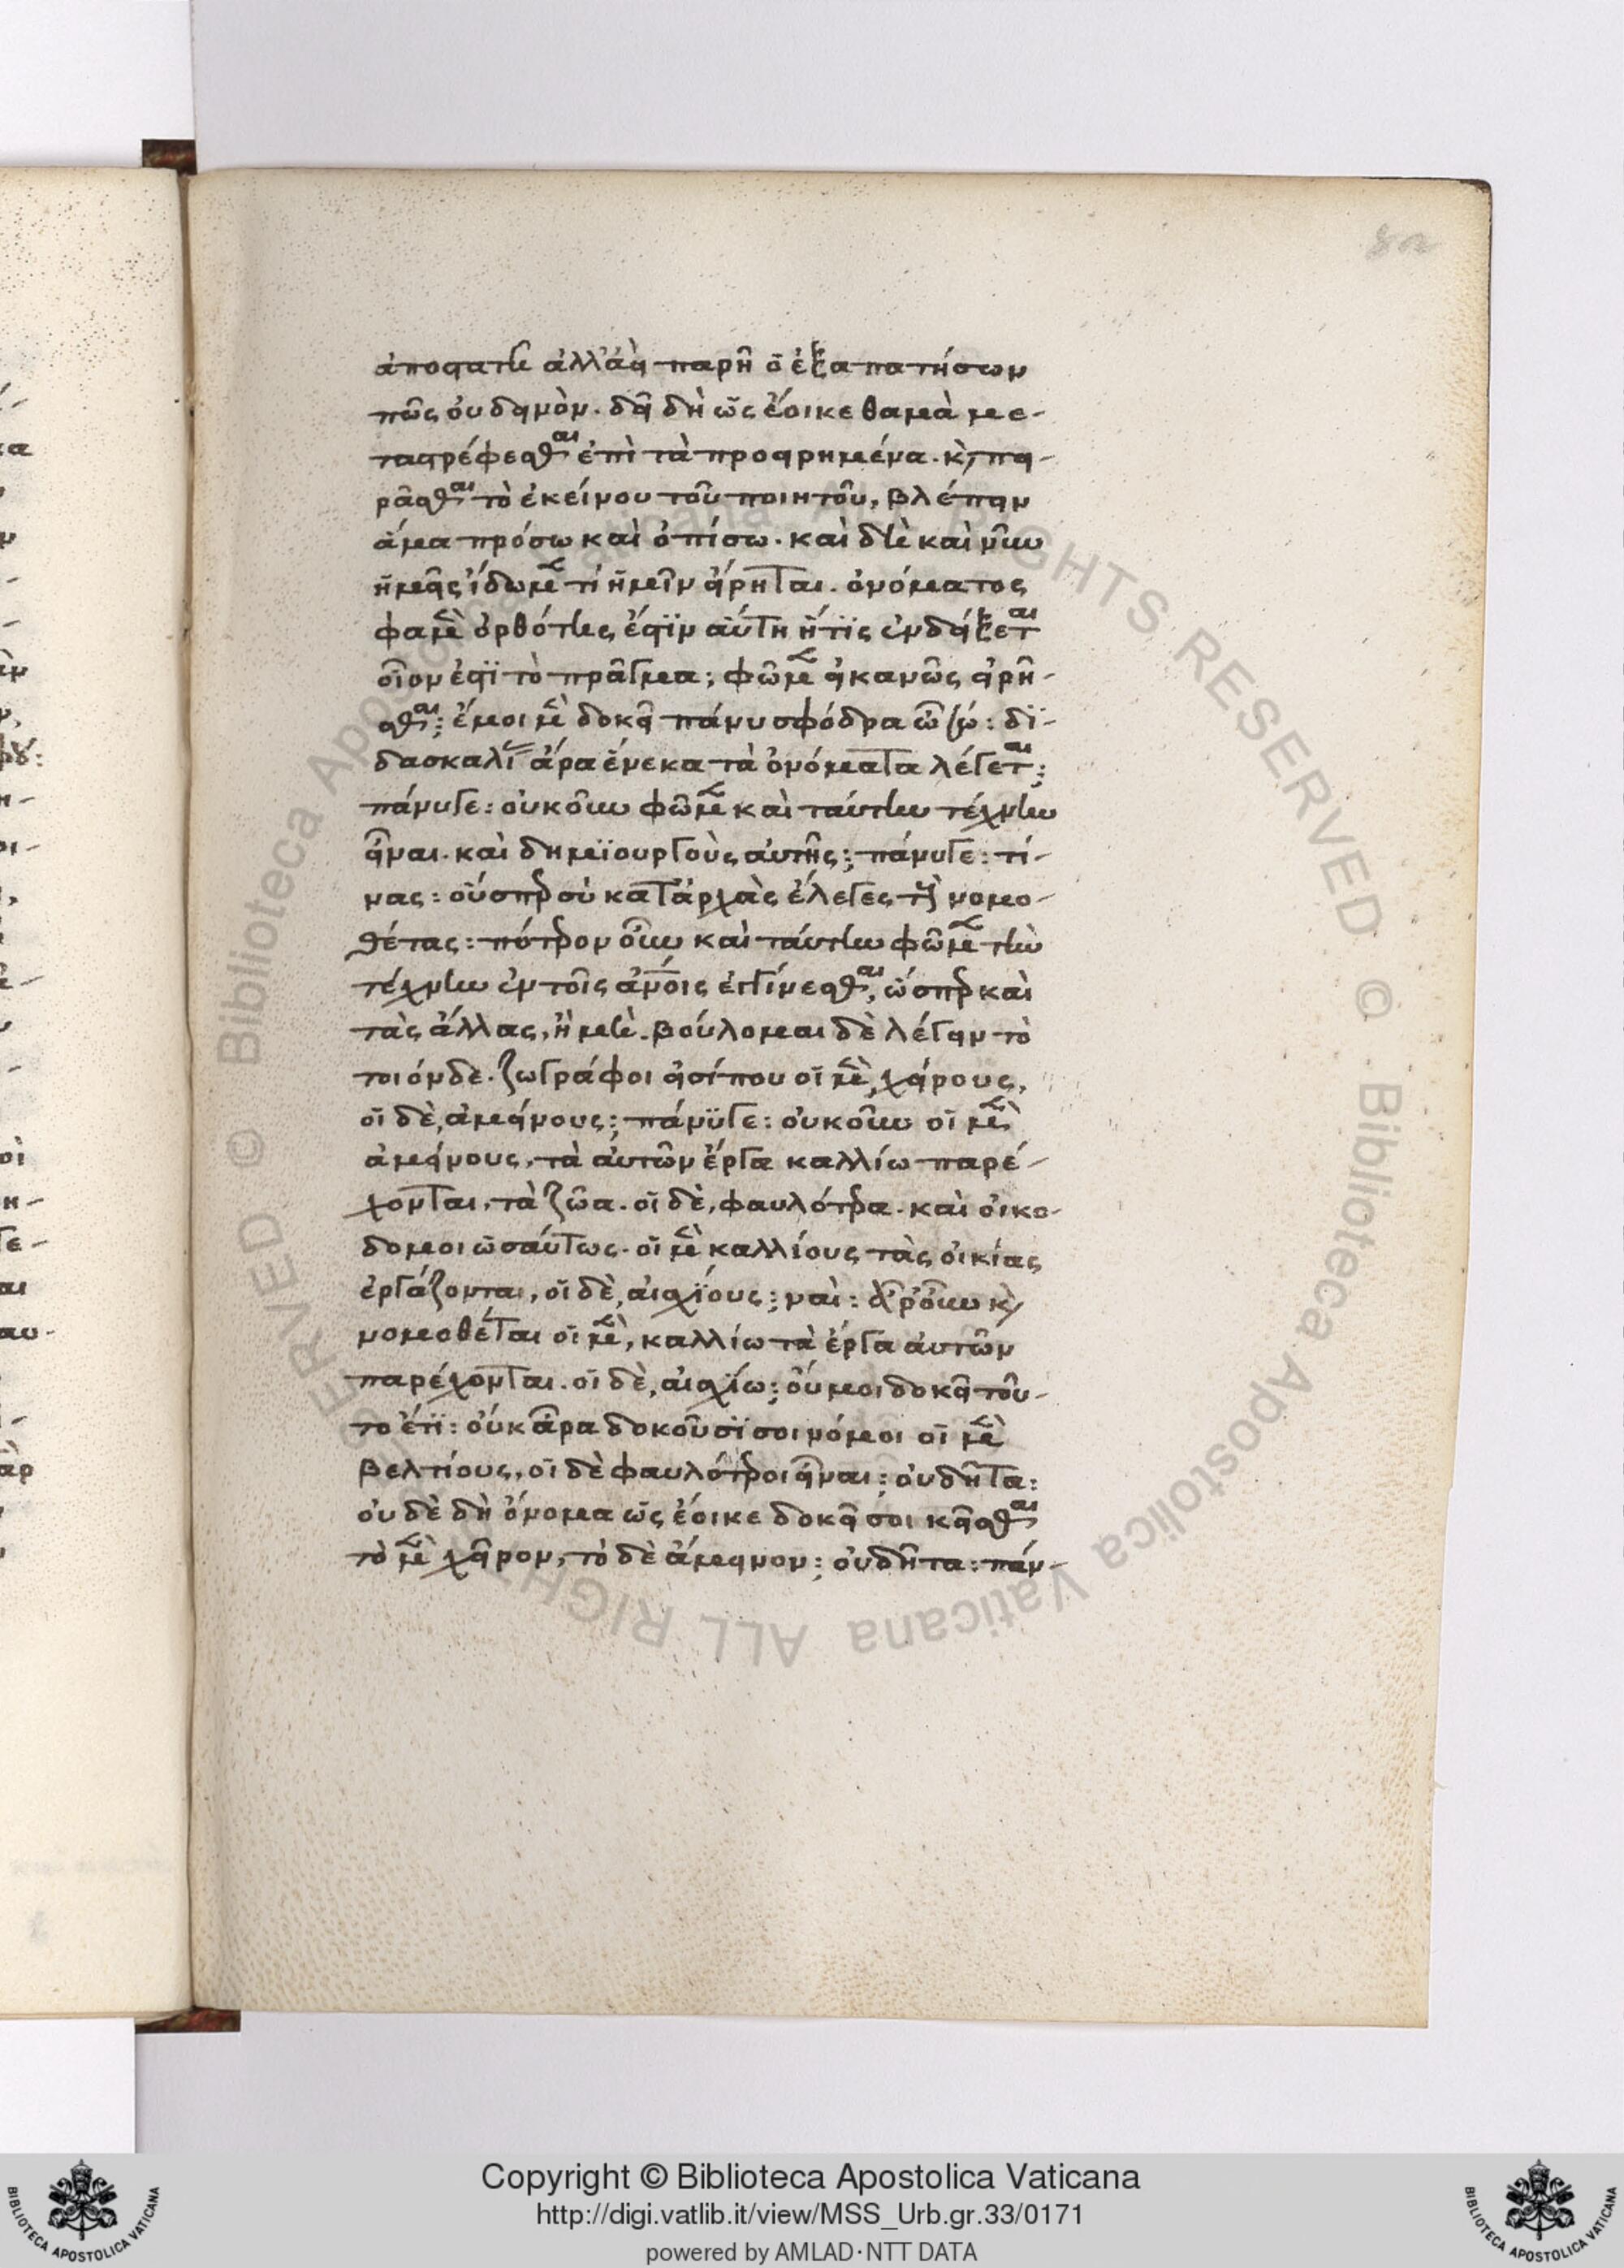 82
ἀποστατῆ ἀλλ' ἀεὶ παρῆ ὁ ἐξαπατήσων
πῶς οὐ δεινόν. δεῖ δὴ ὡς ἔοικε θαμὰ με-
ταστρέφεσθαι ἐπὶ τὰ προειρημένα. καὶ πει-
ρᾶσθαι τὸ ἐκείνου τοῦ ποιητοῦ, βλέπειν
ἅμα πρόσω καὶ ὀπίσω. καὶ δὴ καὶ νῦν
ἡμεῖς ἴδωμεν τί ἡμῖν εἴρηται. ὀνόματος
φαμὲν ὀρθότης ἐστὶν αὕτη ἥτις ἐνδείξεται
οἷον ἐστὶ τὸ πρᾶγμα; φῶμεν ἱκανῶς εἰρῆ-
σθαι; ἐμοὶ μὲν δοκεῖ πάνυ σφόδρα ὦ σώ: δι-
δασκαλίας ἄρα ἕνεκα τὰ ὀνόματα λέγεται;
πάνυγε: οὐκοῦν φῶμεν καὶ ταύτην τέχνην
εἶναι. καὶ δημιουργοὺς αὐτῆς; πάνυγε: τί-
νας: οὕσπερ σὺ κατἀρχὰς ἔλεγες τοὺς νομο-
θέτας: πότερον οὖν καὶ ταύτην φῶμεν τὴν
τέχνην ἐν τοῖς ἀνοις ἐγγίνεσθαι, ὥσπερ καὶ
τὰς ἄλλας, ἢ μή. βούλομαι δὲ λέγειν τὸ
τοιόνδε. ζωγράφοι εἰσί που οἱ μὲν, χείρους,
οἱ δὲ, ἀμείνους; πάνυγε: οὐκοῦν οἱ μὲν
ἀμείνους, τὰ αὐτῶν ἔργα καλλίω παρέ-
χονται, τὰ ζῶα. οἱ δὲ, φαυλότερα. καὶ οἰκο-
δομοι ὡσαύτως. οἱ μὲν καλλίους τὰς οἰκίας
ἐργάζονται, οἱ δὲ, αἰσχίους; ναί: ἆρ' οὖν καὶ
νομοθέται οἱ μὲν, καλλίω τὰ ἔργα αὐτῶν
παρέχονται. οἱ δὲ, αἰσχίω; οὔ μοι δοκεῖ τοῦ-
το ἔτι: οὐκ ἄρα δοκοῦσί σοι νόμοι οἱ μὲν
βελτίους, οἱ δὲ φαυλότεροι εἶναι; οὐ δῆτα:
οὐδὲ δὴ ὄνομα ὡς ἔοικε δοκεῖ σοι κεῖσθαι
τὸ μὲν χεῖρον, τὸ δὲ ἄμεινον; οὐ δῆτα: πάν-
Copyright © Biblioteca Apostolica Vaticana
http://digi.vatlib.it/view/MSS_Urb.gr.33/0171
powered by AMLAD·NTT DATA